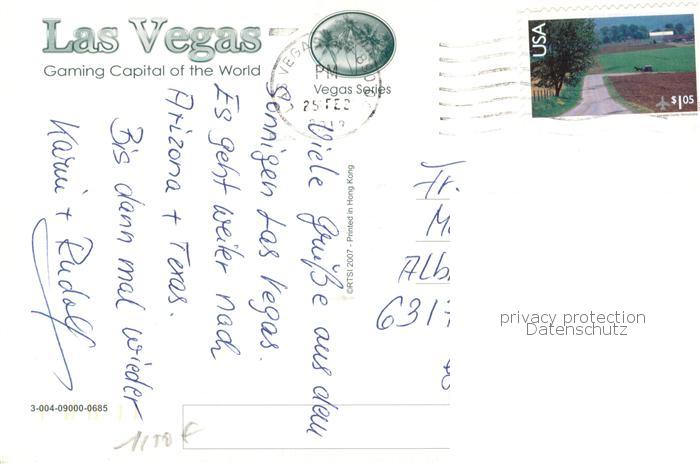 Las Vegas
Gaming Capital of the World
Vegas Series
LAS VEGAS
PM
25 FEB
USA
$1.05
Viele Grüße aus dem
sonnigen Las Vegas.
Es geht weiter nach
Arizona + Texas.
Bis dann mal wieder
Karin + Rudolf
©RTSI 2007 - Printed in Hong Kong
Fr.
M
Alb
6317
privacy protection
Datenschutz
3-004-09000-0685